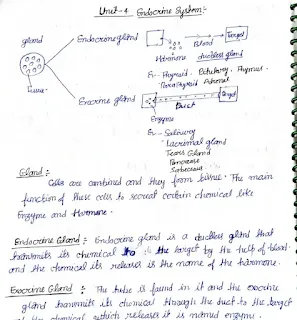 Unit-4 Endocrine System:-
gland
Endocrine gland
Blood
Target
Hormone
ductless gland
Ex- Thyroid, Pituitary, Thymus
Parathyroid Adrenal
Exocrine gland
Target
Duct
Enzyme
Ex- Salivary
Lacrimal gland
Tears Gland
Pancrease
Gland :-
Cells are combined and they form tissue. The main
function of these cells to secreat certain chemical like
Enzyme and Hormone.
Endocrine Gland :- Endocrine gland is a ductless gland that
transmits its chemical to the target by the help of blood.
and the chemical its releases is the name of the hormone.
Exocrine Gland :- The tube is found in it and the exocrine
gland transmits its chemical through the duct to the target
the chemical which releases it is named enzyme.